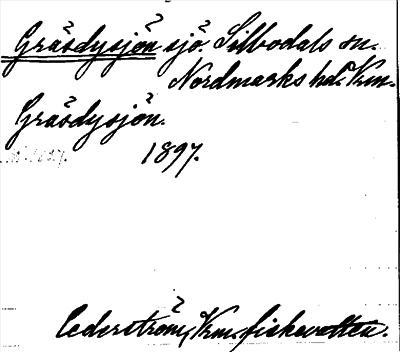 Gräsdysjön sjö. Silbodals sn.
Nordmarks hd. Vrm.
Gräsdysjön.
1897.
Cederström, Vrm. fiskevatten.